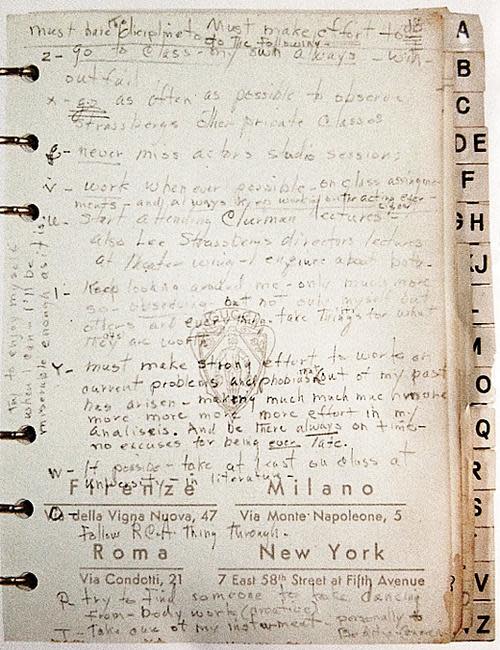 must have the dicipline to do the following -
must make effort to do
z - go to class - my own always - with-
out fail
x - go as often as possible to observe
Strassberg's other private classes
g - never miss actors studio sessions
v - work whenever possible - on class assigne-
ments - and always keep working on the acting exer-
cises
u - start attending Clurman lectures -
also Lee Strassbergs directors lectures
at theater wing - enquire about both
l - keep looking around me - only much more
so - observing - but not only myself but
others and everything - take things for what
they are worth
y - must make strong effort to work on
current problems and phobias that out of my past
has arisen - making much much much more
more more more more effort in my
analisis. And be there always on time -
no excuses for being ever late.
w - if possible - take at least one class at
university - in literature -
o - follow RCA thing through.
p - try to find someone to take dancing
from - body work (creative)
t - take care of my instrument - personally &
try to enjoy myself
when I can - I'll be
miserable enough as it is
GUCCI
Firenze Milano
Via della Vigna Nuova, 47 Via Monte Napoleone, 5
Roma New York
Via Condotti, 21 7 East 58th Street at Fifth Avenue
A
B
C
DE
F
GH
KJ
L
M
O
Q
R
S
V
Z